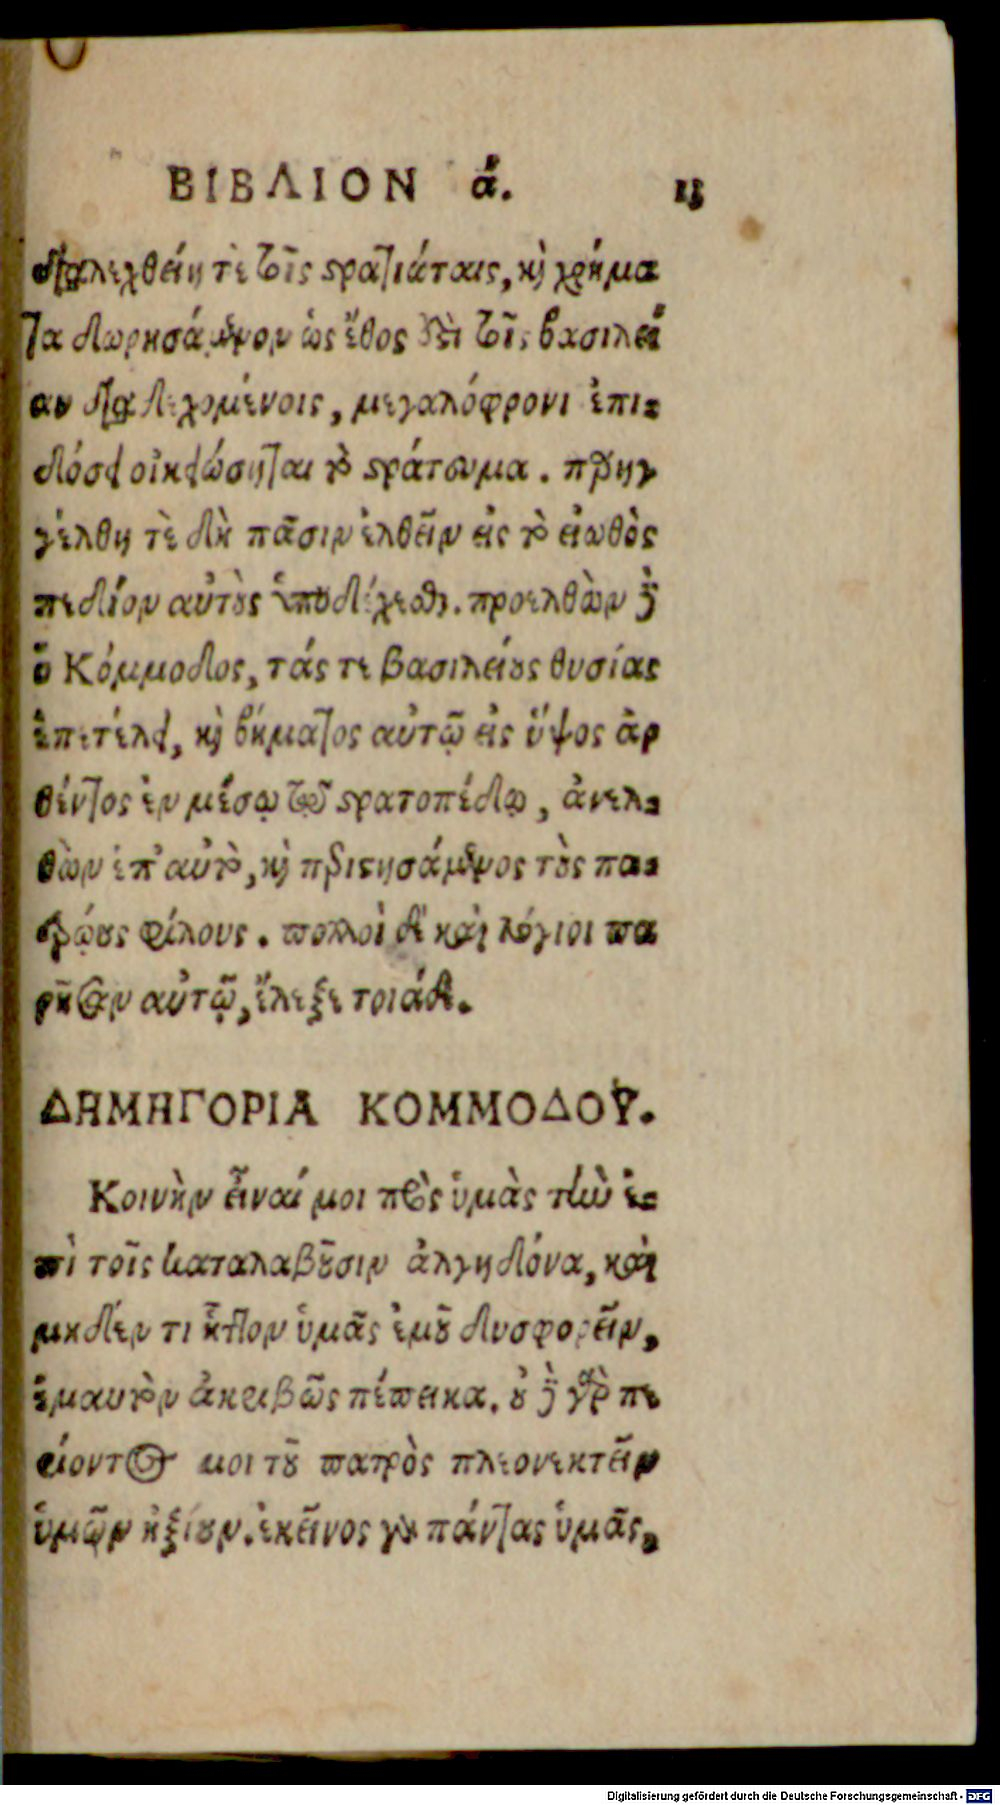 ΒΙΒΛΙΟΝ ά. 13
διαλεχθείη τὲ τοῖς στρατιώταις, καὶ χρήμα
τα δωρησάμενον ὡς ἔθος ἐπὶ τοῖς βασιλεί
αν διαδεχομένοις, μεγαλόφρονι ἐπι-
δόσει οἰκειώσηται τὸ στράτευμα. προηγ
γέλθη τὲ δὴ πᾶσιν ἐλθεῖν εἰς τὸ εἰωθὸς
πεδίον αὐτοὺς ὑποδέχεσθαι. προελθὼν δὲ
ὁ Κόμμοδος, τάς τε βασιλείους θυσίας
ἐπετέλει, καὶ βήματος αὐτῷ εἰς ὕψος ἀρ
θέντος ἐν μέσῳ τῷ στρατοπέδῳ, ἀνελ-
θὼν ἐπ' αὐτὸ, καὶ περιστησάμενος τοὺς πα-
τρῴους φίλους. πολλοὶ δὲ καὶ λόγιοι πα
ρῆσαν αὐτῷ, ἔλεξε τοιάδε.
ΔΗΜΗΓΟΡΙΑ ΚΟΜΜΟΔΟΥ.
Κοινὴν εἶναί μοι πρὸς ὑμὰς τὴν ἐ-
πὶ τοῖς καταλαβοῦσιν ἀλγηδόνα, καὶ
μηδέν τι ἧττον ὑμᾶς ἐμοῦ δυσφορεῖν,
ἐμαυτὸν ἀκριβῶς πέπεικα. οὐ δὲ γὰρ πε
ριόντος μοι τοῦ πατρὸς πλεονεκτεῖν
ὑμῶν ἠξίουν. ἐκεῖνος γὰρ πάντας ὑμᾶς,
Digitalisierung gefördert durch die Deutsche Forschungsgemeinschaft - DFG